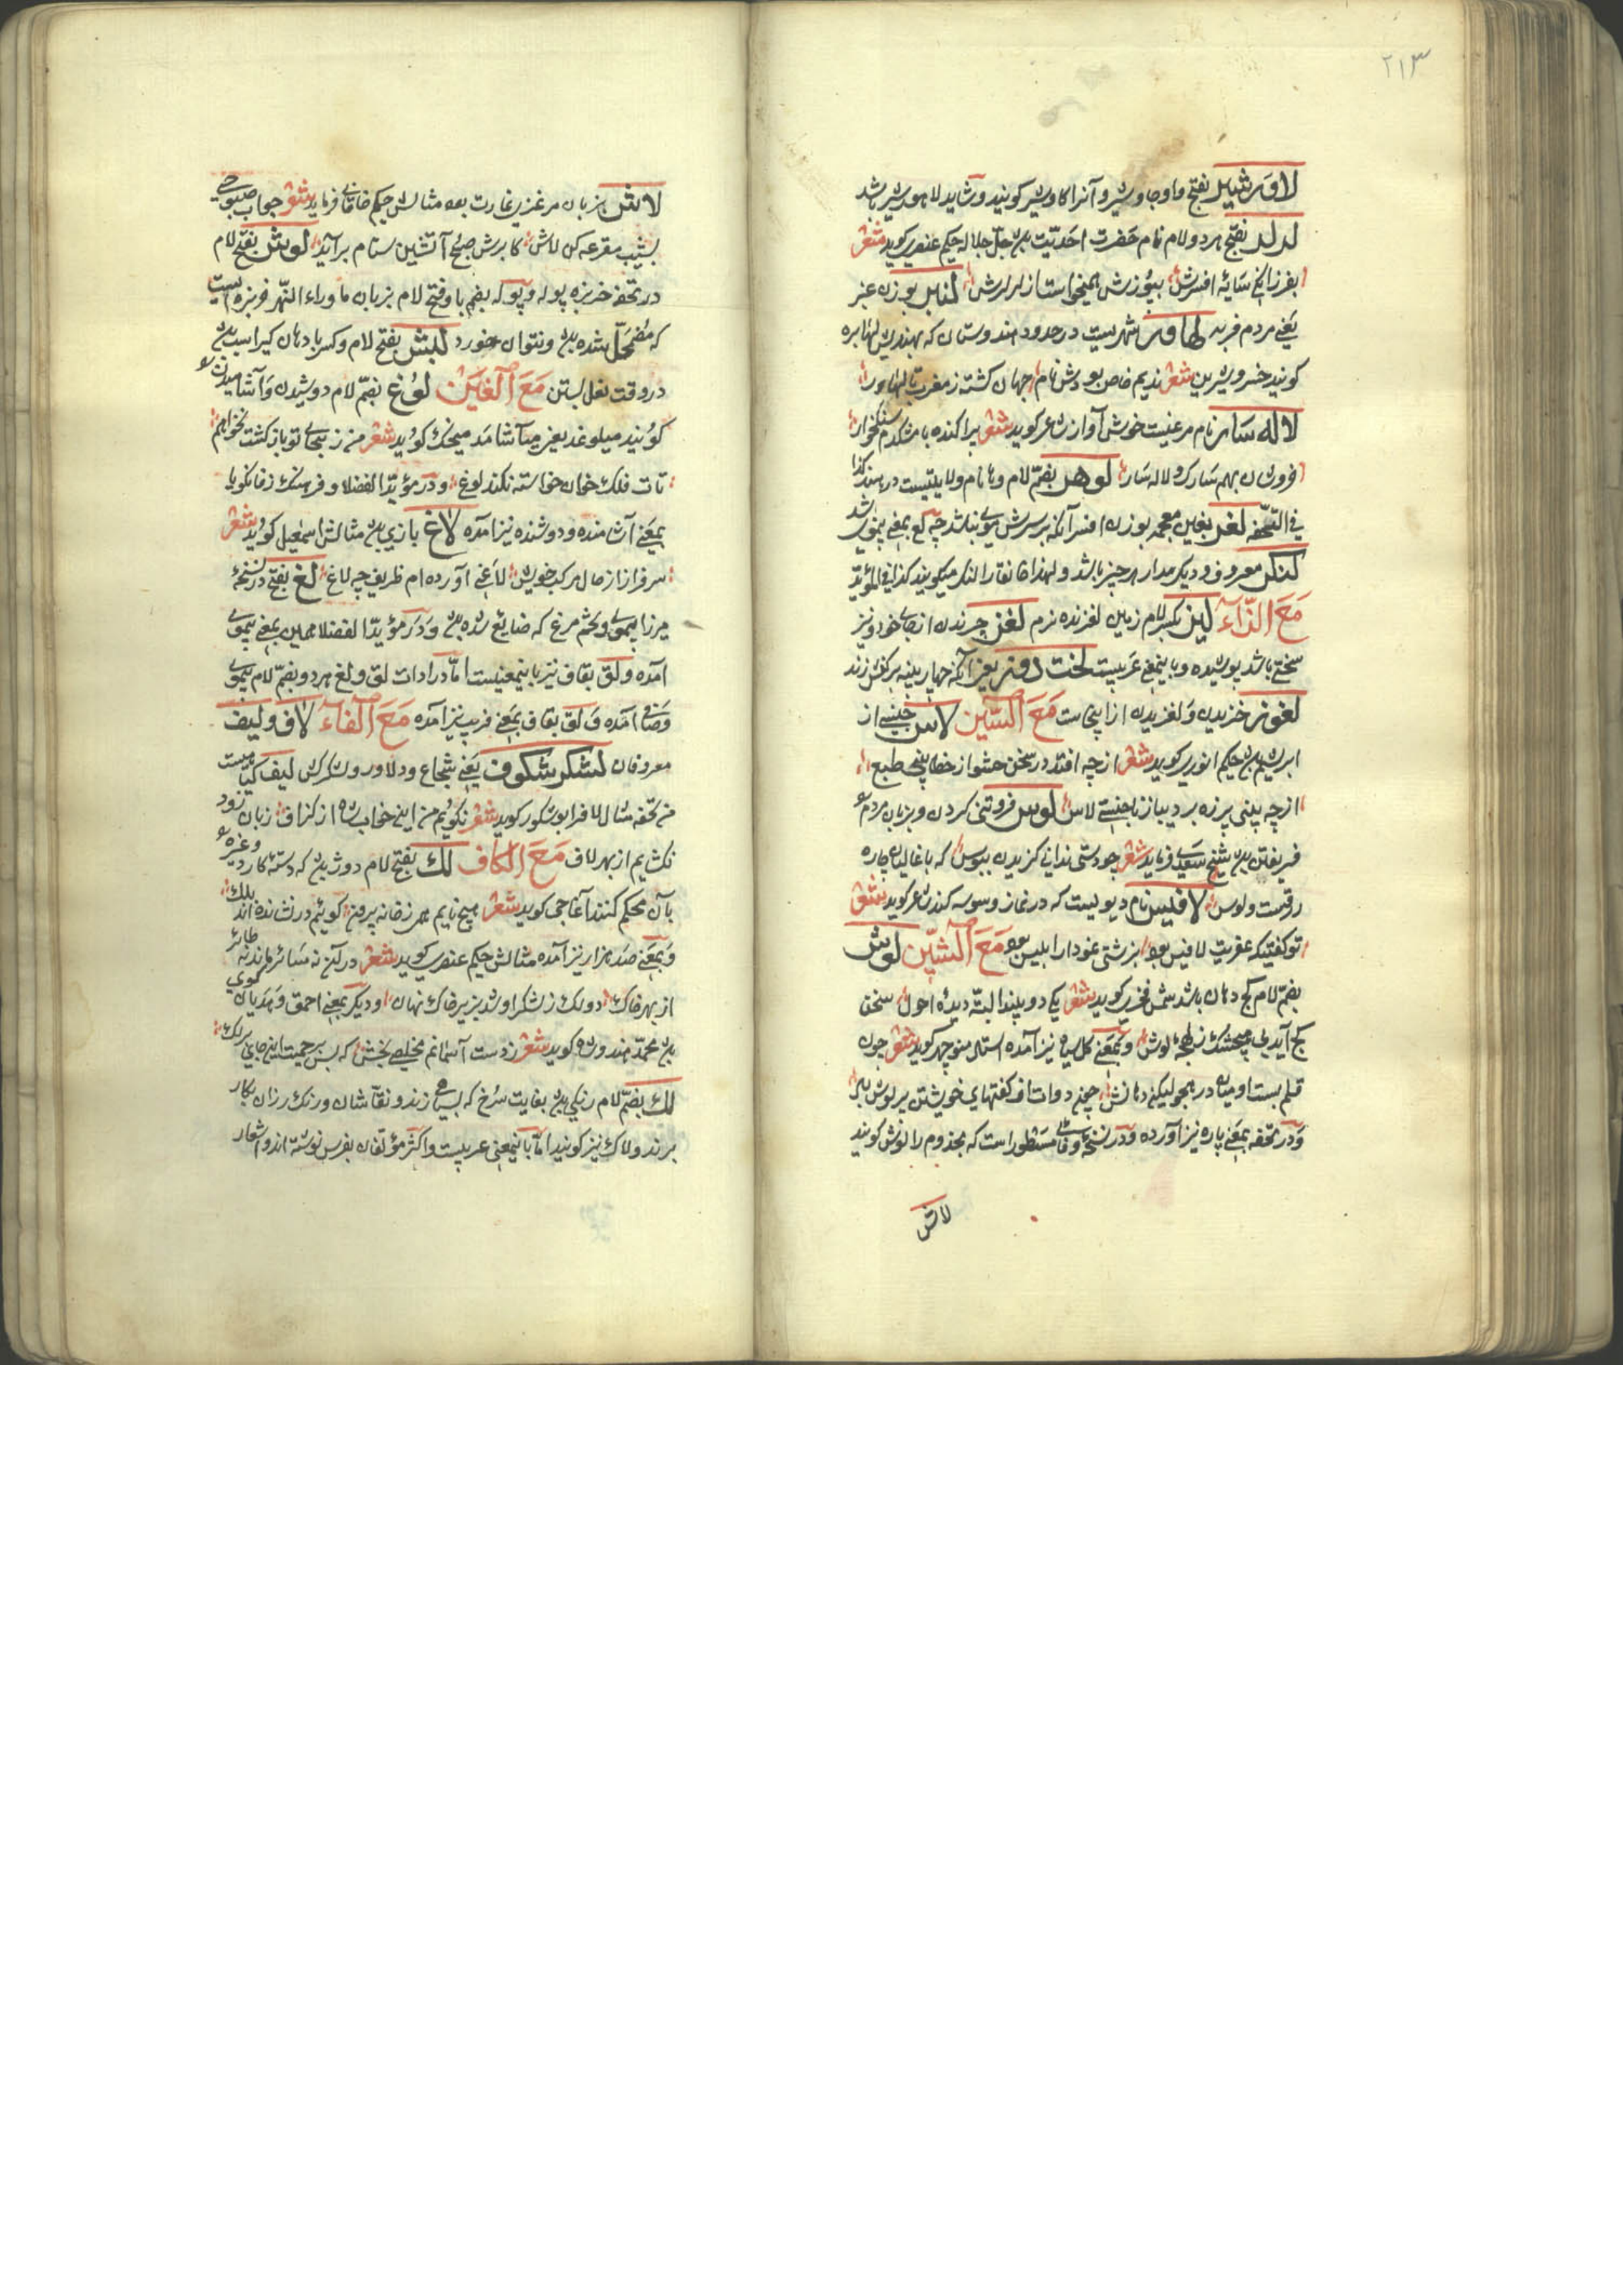 ۲۱۳
لاورشیر بفتح واو جاوشیر و آنرا کاوشیر کویند و شاید لاهورشیر باشد
لرلر بفتح هر دو لام نام حضرت احدیّت بود جلّ جلاله حکیم عنصری کوید شعر
سایهٔ افسرش بپوزش همیخواست از لرلرش لنبر بوزن عنبر
یعنی مردم فربه لهاور شهریست در حدود هندوستان که بهندیش لهاوره
کویند خسرو شیرین شعر ندیم خاص بودش نام جهان کشته ز مغرب تا لهاور
لاله سار نام مرغیست خوش آواز شاعر کوید شعر پراکنده با مشکدم سنکخوار
خروشان بهم سارک و لاله سار لوهر بضمّ لام و ها نام ولایتیست در هند کذا
فی التحفه لغر بغین معجمه بوزن افسر آنکه بر سرش موی نباشد چه لغ بمعنی بیموی باشد
لنکر معروف و دیکر مدار هر چیز باشد و لهذا خانقاه را لنکر میکویند کذا فی المؤید
مع الزاء لیز بکسر لام زمین لغزنده نرم لغز خزیدن از جای خود و نیز
سختی باشد پوشیده و باینمعنی عربیست لخت دوز یعنی آنکه چهار پینه بر کفش زند
لغوز خزیدن و لغزیدن از اینجاست مع السین لاس جنسی از
ابریشم بود حکیم انوری کوید شعر ازچه افتد در سخن حشو از خطا بینی طبع
ازچه بینی پرزه بر دیبا ز ناجنسی لاس لوس فروتنی کردن و بزبان مردم
فریفتن بود شیخ سعدی فرماید شعر چو دستی ندانی کزیدن ببوس که با غالبان چاره
زرقست و لوس لاقیس نام دیویست که در نماز وسوسه کند شاعر کوید شعر
تو کفتی که عفریت لاقیس بود بزشتی نمودار ابلیس بود مع الشین لوش
بضمّ لام کج دهان باشد شمس فخری کوید شعر یکی دو بیند البته دیدهٔ احول سخن
کج آید بی هیچ شک ز لهجهٔ لوش و بمعنی کل سیاه نیز آمده استاد منوچهر کوید شعر چون
قلم بست او میان در هجو لیکن دهانش چون دوات از کفتهای خویشتن پر لوش باد
و در تحفه بمعنی پاره نیز آورده و در نسخهٔ وفائی مسطور است که مجذوم را لوش کویند
لاش
لاش بزبان مرغزی غارت بود مثالش حکیم خاقانی فرماید شعر جواب صبوحی
بشیب مقرعه کن لاش کابرش صبح آتشین ستام برآید لوش بفتح لام
در تحفه خربزه پوله و پوله بضم با و فتح لام بزبان ماوراء النهر خربزه ایست
که مضمحل شده بود و نتوان خورد لبش بفتح لام و کسر با دهان کیر اسب بود
در وقت نعل بستن مع الغین لوغ بضمّ لام دوشیدن و آشامیدن
کویند میلوغد یعنی میآشامد میجک کوید شعر من ز بجای تو باز کشت نخواهم
تات فلک خوان خواسته نکند لوغ و در مؤید الفضلا و فرهنک زفانکویا
بمعنی آشامنده و دوشنده نیز آمده لاغ بازی بود مثالش اسمعیل کوید شعر
سرفراز از حال مرکب خویش لاغی آورده ام ظریف چه لاغ لغ بفتح در نسخهٔ
میرزا بیموی و تخم مرغ که ضایع شده بود و در مؤید الفضلا همین بمعنی بیموی
آمده و لق بقاف نیز باینمعنیست امّا در ادات لق و لغ هر دو بضمّ لام بیموی
و صافی آمده و لق بقاف بمعنی فریب نیز آمده مع الفاء لاف و لیف
معروفان لشکر شکوف یعنی شجاع و دلاور و لشکرکش لیف کیاهیست
من تحفه مثال لاف را بوشکور کوید شعر نکویم من این خواب شاه از کزاف زبان زود
نکشایم از بهر لاف مع الکاف لک بفتح لام دوژ بود که دستهٔ کارد و غیره
بآن محکم کنند آغاجی کوید شعر هیچ نایم همی ز خانه برون کوئیم در نشانده اند بلک
و بمعنی صد هزار نیز آمده مثالش حکیم عنصری کوید شعر در آن نه سائر ماند نه طائر
از بهر خاک دو لک ز لشکر او شد بزیر خاک نهان و دیکر بمعنی احمق و هذیان کوی
بود محمّد هندوشاه کوید شعر ز دست آسمانم مخلصی بخش که بس بیرحمت این جابی بر لک
لک بضمّ لام رنکی بود بغایت سرخ که بسیاهی زند و نقّاشان و رنک رزان بکار
برند و لاک نیز کویند امّا باینمعنی عربیست و اکثر مؤلفان بفرس نوشته اند و اشعار